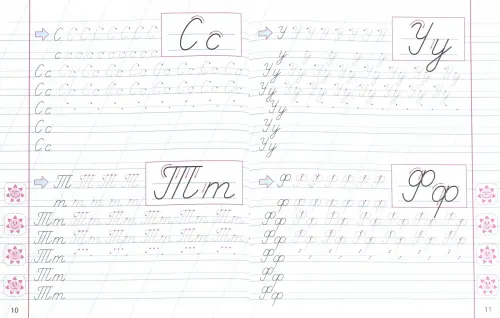 Сс
С С С С С С С С
с с с с с с с с с с
Сс Сс Сс Сс Сс Сс Сс Сс Сс
Сс Сс Сс Сс Сс Сс Сс Сс Сс
Сс
Сс
Сс
Тт
Т Т Т Т Т
т т т т т т
Тт Тт Тт Тт Тт Тт
Тт Тт Тт Тт Тт Тт
Тт
Тт
Тт
10
Уу
У У У У У У У У
у у у у у у у
Уу Уу Уу Уу Уу Уу Уу Уу
Уу Уу Уу Уу Уу Уу Уу Уу
Уу
Уу
Уу
Фф
Ф Ф Ф Ф Ф Ф
ф ф ф ф ф ф
Фф Фф Фф Фф Фф Фф
Фф Фф Фф Фф Фф Фф
Фф
Фф
Фф
11